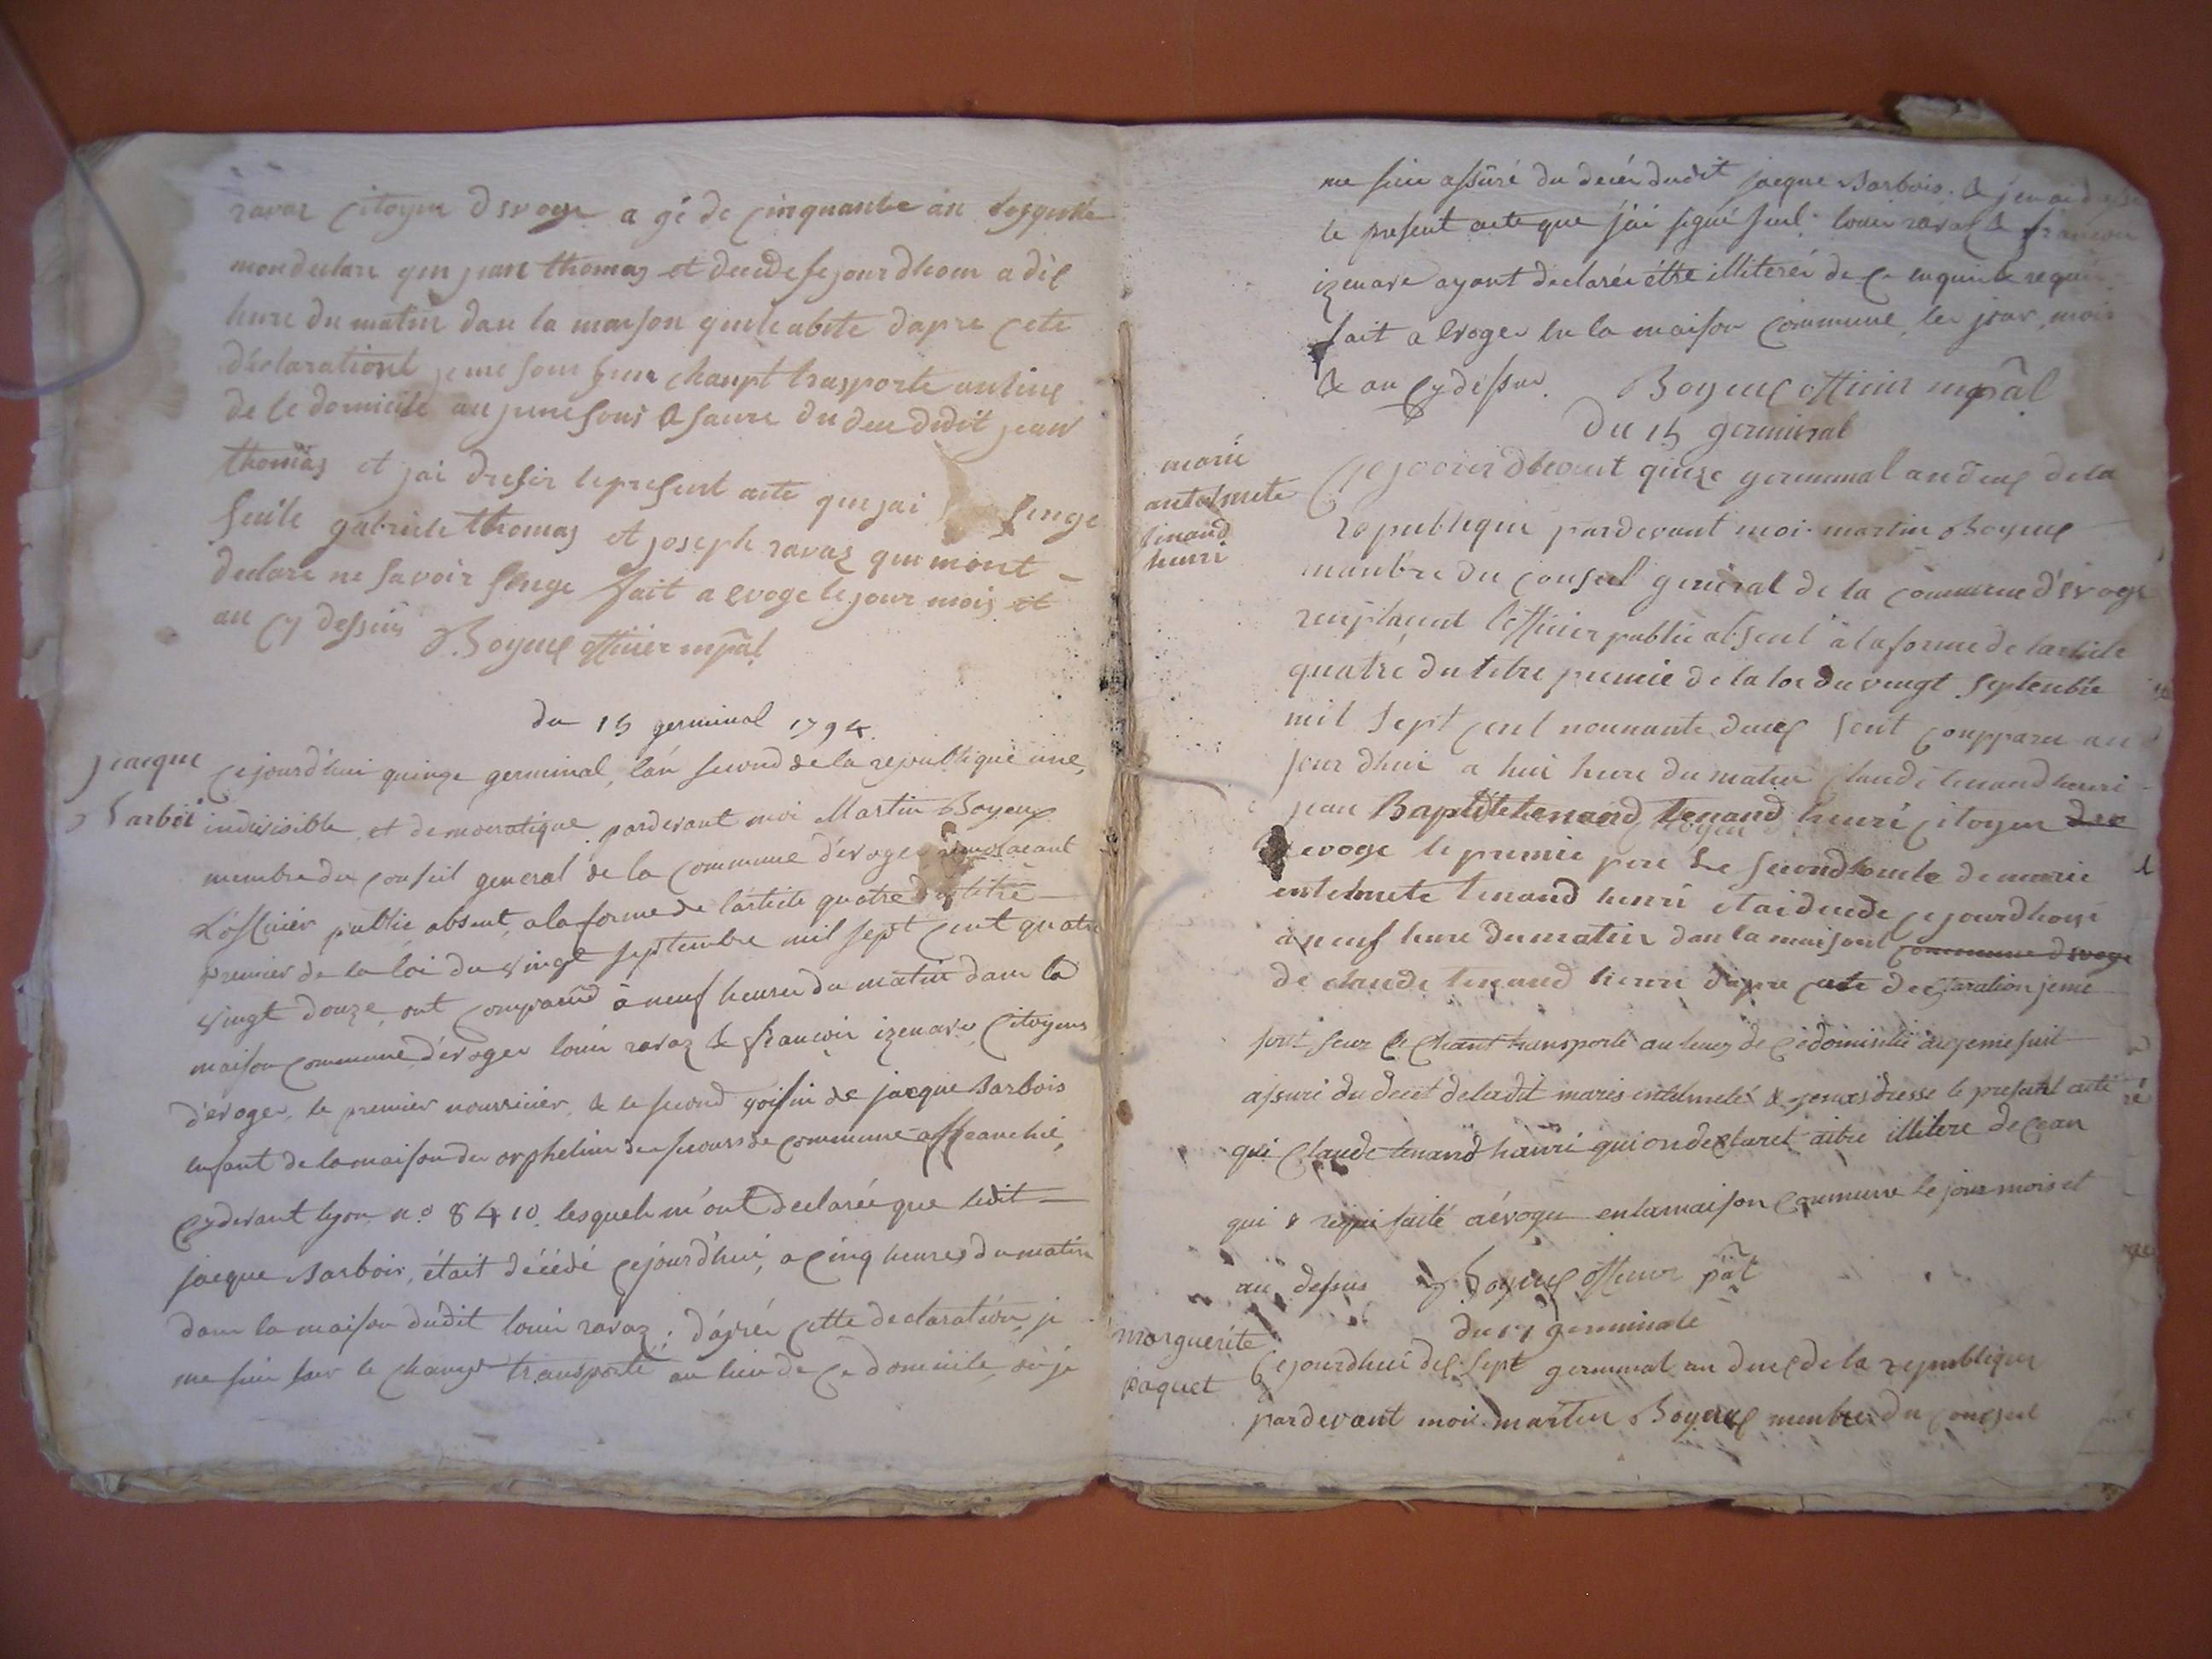 ravaz citoyen devoge a gé de cinquante an lesquele
mon declare que jean thomas et decede se jour dhoui a dix
hure du matin dan la maison quile abite dapre cete
déclarationt je me soui sure chanpt trasporte au lieux
de le domicile au je me soui asaure du dece dudit jean
thomas et jai dresir le present acte que jai singe
seule gabriele thomas et joseph ravaz que mont
declare ne savoir singe fait a evoge le jour mois et
an cy dessus Boyeux officier mpãl
du 15 germinal 1794.
jacque
Barboi
cejourd'hui quinze germinal, l'an second de la republique une,
indivisible, et democratique, pardevant moi Martin Boyeux
membre du conseil general de la commune d'evoge remplacant
L'officier public absent, a la forme de l'article quatre du titre
premier de la loi du vingt septembre mil sept cent quatre
vingt douze, ont comparû à neuf heures du matin dans la
maison commune d'evoges louis ravaz & francois izenave citoyens
d'evoges, le premier nourricier, & le second voisin de jacque Barbois
enfant de la maison des orphelins du secours de commune affranchie,
cydevant lyon n.o 8410. lesquels m'ont declarée que ledit
jacque Barbois, était décédé cejourd'hui, a cinq heures du matin
dans la maison dudit louis ravaz; d'après cette declaration, je
me suis sur le champt transporté au lieu de ce domicile, où je
me suis assûré du décés dudit jacque Barbois. & j'en ai dressé
le present acte que j'ai signé seul. louis ravaz & francois
izenave ayant declarés être illiterés de ce enquis & requis
fait a evoges en la maison commune, les jour, mois
& an cy dessus. Boyeux officier mpãl
Du 15 germinal
marie
antelmete
tinand
henri
Cejourdhouit quinze germinal an deux de la
republique pardevant moi martin Boyeux
manbre du conseil general de la commune d'evoge
remplacent l'officier public absent a la forme de larticle
quatre du titre premie de la loi du vingt septenbre
mil sept cent nonnante deux sont conpparu au
jourdhui a hui hure du matin claude tenand henri
jean Baptite tenand tenand henri citoyen de
evoge le premie pere Le second houcle de marie
entelmete tenand henri etai decede cejourdhoui
a neuf hure du matin dan la maisont commune d evoge
de claude tenand henri dapre cete declaration je me
suit sur le chant transporté au lieuz de ce domicilie au je me suit
assuré du decet deladit maries entelmete & jenais dresse le presant acte
que claude tenand henri qui on declaret aitre illitere de cean
qui & requi faité aévoge en la maison coumune le jour mois et
au dessus Boyeux officier pãl
du 17 germinale
marguerite
paquet
Cejourdhui dix sept germinal an deux de la republique
pardevant moi martin Boyeux menbre du conseil